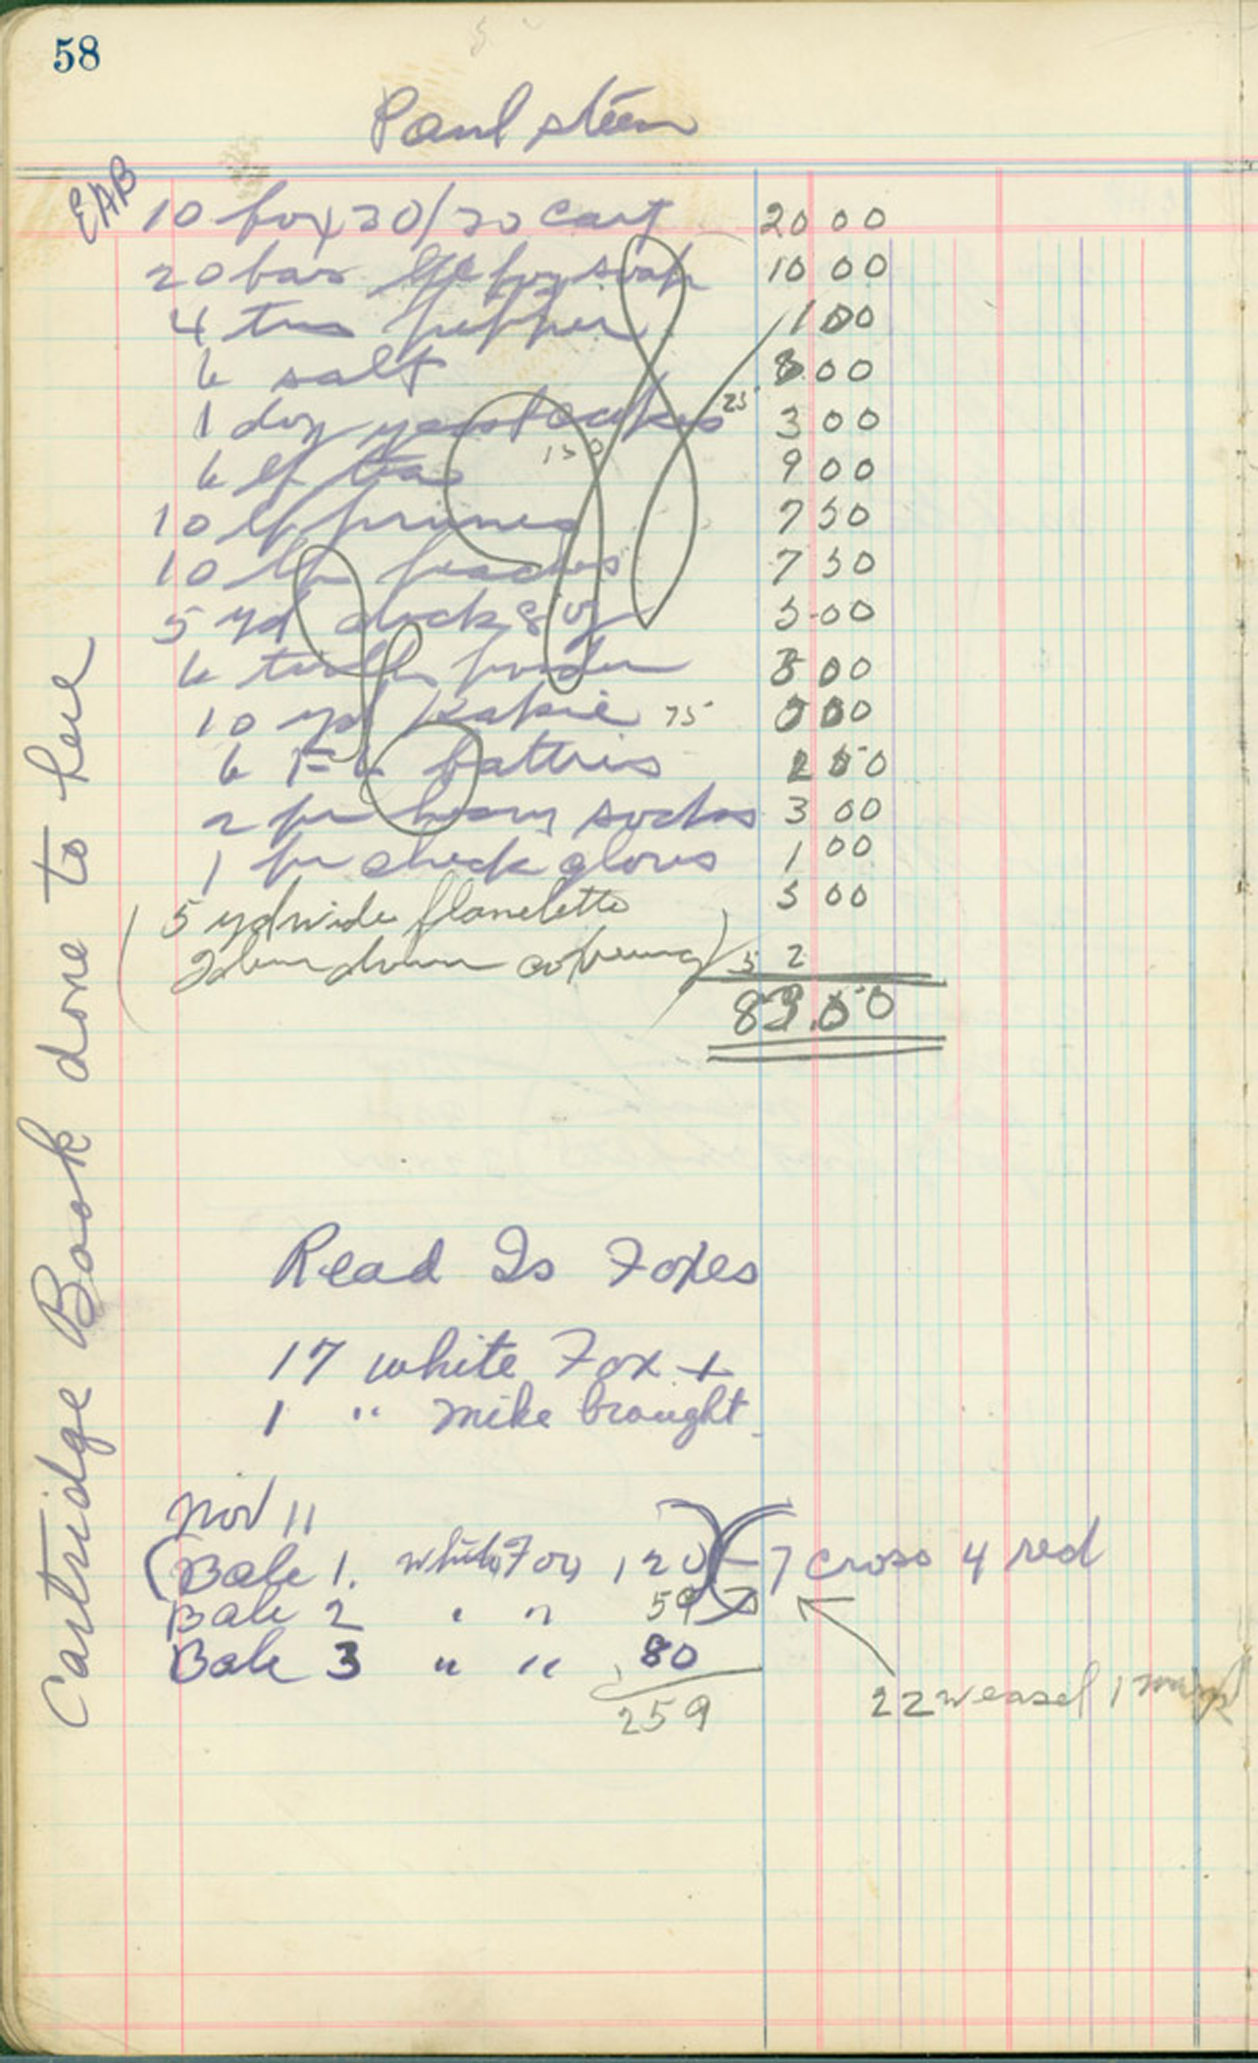 58
Paul steen
EAB
10 box 30/30 Cart 20 00
20 bar soap 10 00
4 tins pepper 1 00
6 salt 3 00
1 doz yeast cakes 25 3 00
6 lb tea 150 9 00
10 lb prunes 7 50
10 lb peaches 7 50
5 yd duck 8 oz 5 00
6 powder 00
10 yd Kakie 75
6 batteris
2 pr heavy socks 3 00
1 pr check gloves 1 00
(5 yd wide flanelette 5 00
down covering) 5 2
83.50
Cartridge Book done to here
Read Is Foxes
17 white Fox +
1 " mike brought
Nov 11
(Bale 1. white Fox 120) 7 cross 4 red
Bale 2 " " 59
Bale 3 " " 80
259
22 weasel 1 mink